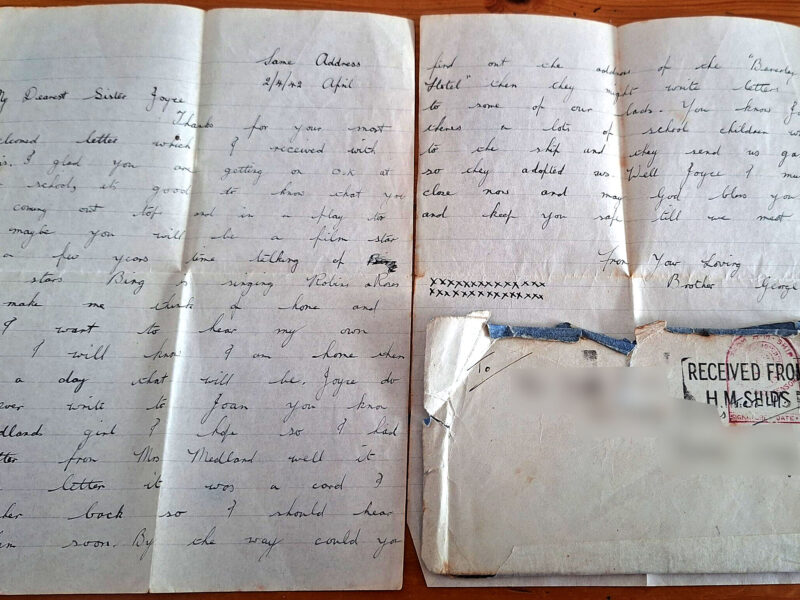 Same Address
2/4/42 April
My Dearest Sister Joyce
Thanks for your most
welcomed letter which I received with
I glad you are getting on O.K at
school, its good to know that you
coming out top and in a play to
maybe you will be a film star
a few years time talking of
stars Bing is singing Robins & Roses
make me think of home and
I want to hear my own
I will know I am home when
a day that will be. Joyce do
ever write to Joan you know
girl I hope so I had
letter from Mrs Medland well it
letter it was a card I
her back so I should hear
soon. By the way could you
find out the address of the "Beverley
Hotel" then they might write letters
to some of our lads. You know J
theres a lots of school children
to the ship and they send us
so they adopted us. Well Joyce I mu
close now and may God bless you
and keep you safe till we meet
From Your Loving
Brother George
xxxxxxxxxxxxx
xxxxxxxxxxxxx
To
RECEIVED FROM
H.M. SHIPS